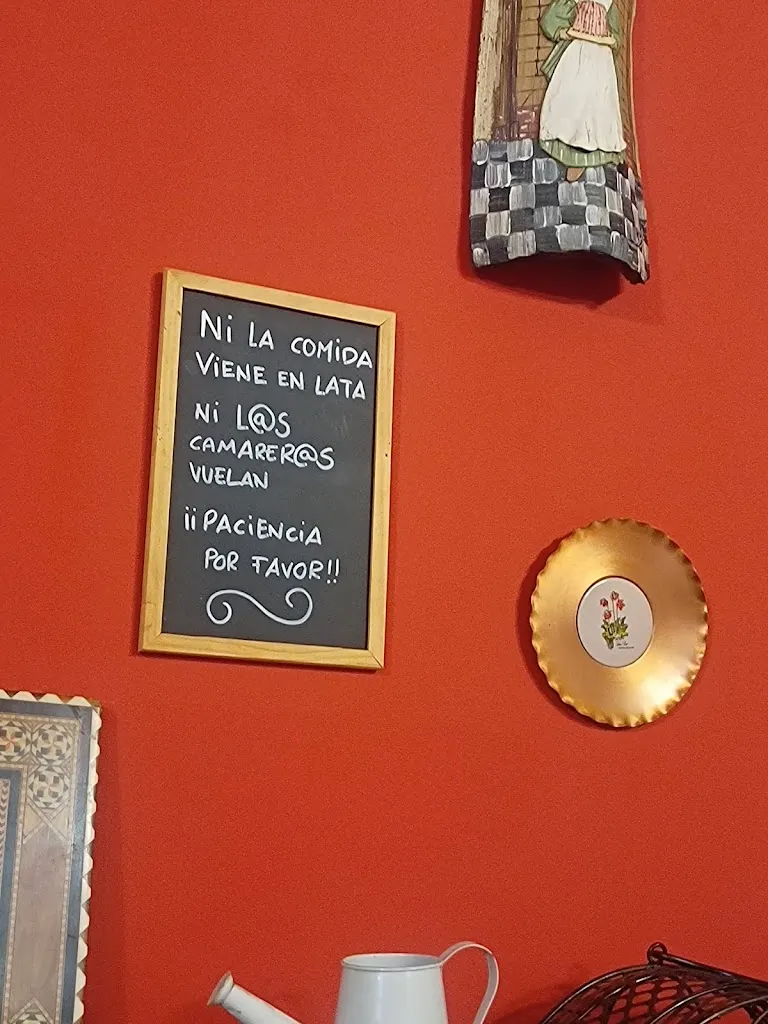 Ni LA COMiDA
ViENE EN LATA
Ni L@S
CAMARER@S
VUELAN
¡¡PACiENCiA
POR FAVOR!!